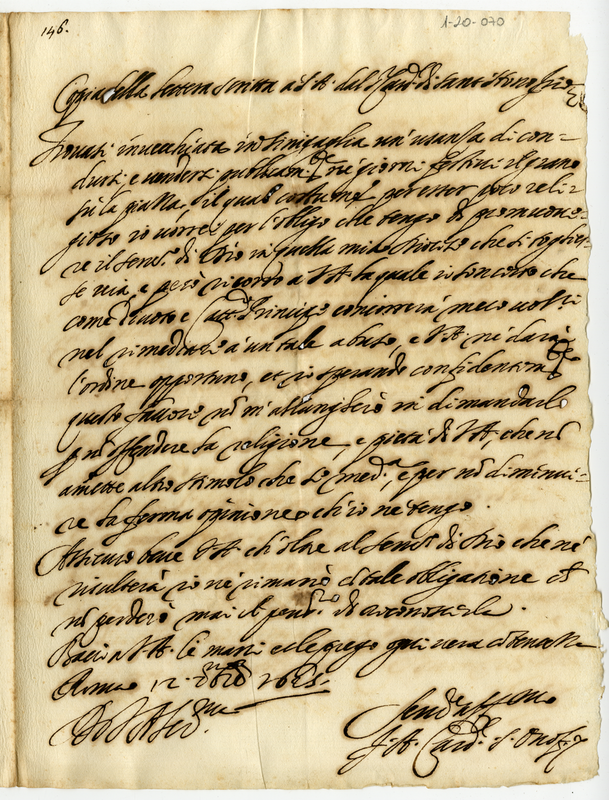 146.
1-20-070
Coppia della lettera scritta a S.A. dal S. Card. di Sant'Honofrio
Trovasi invecchiata in Sinigaglia un'usanza di con-
dursi, e vendersi publicam.te ne giorni festivi il grano
sù la piazza, il qual costume, per esser poco reli-
gioso io vorrei per l'obligo che tengo di promuove-
re il serv.o di Dio in quella mia Diocese che si toglies-
se via, e però ricorro a V.A. la quale
come divoto e Catt.co Principe concorrerà meco
nel rimediare a un tale abuso, e V.A. ne darà
l'ordine opportuno, et io sperando confidentem.te
questo favore nò m'allungherò in dimandarlo
p nò offendere la religione, e pietà di V.A., che nò
amette altro stimolo che se med.a, e per nò diminui-
re la ferma opinione ch'io ne tengo.
Assicuro bene V.A. ch'oltre al serv.o di Dio che ne
risulterà io ne rimarrò cò tale obligatione che
nò perderò mai il pens.ro di
Bacio a V.A. le mani e le prego ogni vera
Roma 12
Di V.A. Ser.ma
Serv.
F. A. Card. S. Onof.o